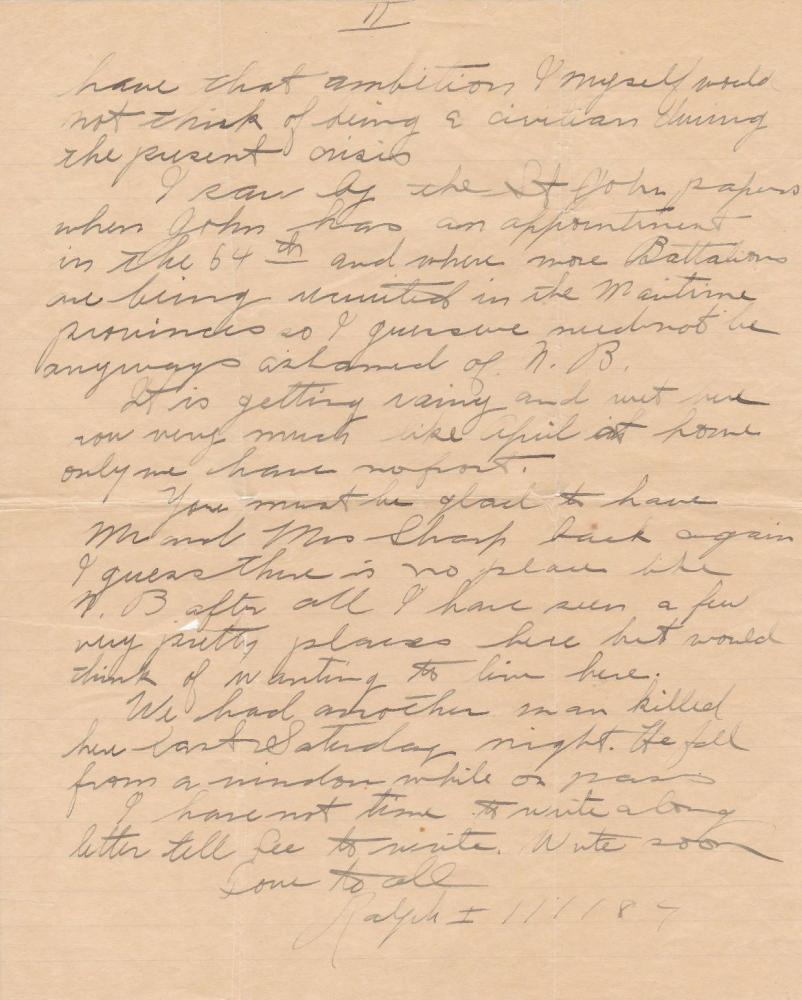 II
have that ambition I myself would
not think of being a civilian during
the present crisis
I saw by the St John papers
where John has an appointment
in the 64th and where more Battalions
are being recruited in the Maritime
provinces so I guess we need not be
anyways ashamed of N. B.
It is getting rainy and wet here
now very much like April at home
only we have no frost.
You must be glad to have
Mr and Mrs Sharp back again
I guess there is no place like
N. B after all I have seen a few
very pretty places here but would
think of wanting to live here.
We had another man killed
here last Saturday night. He fell
from a window while on pass
I have not time to write a long
letter tell Lee to write. Write soon
Love to all
Ralph